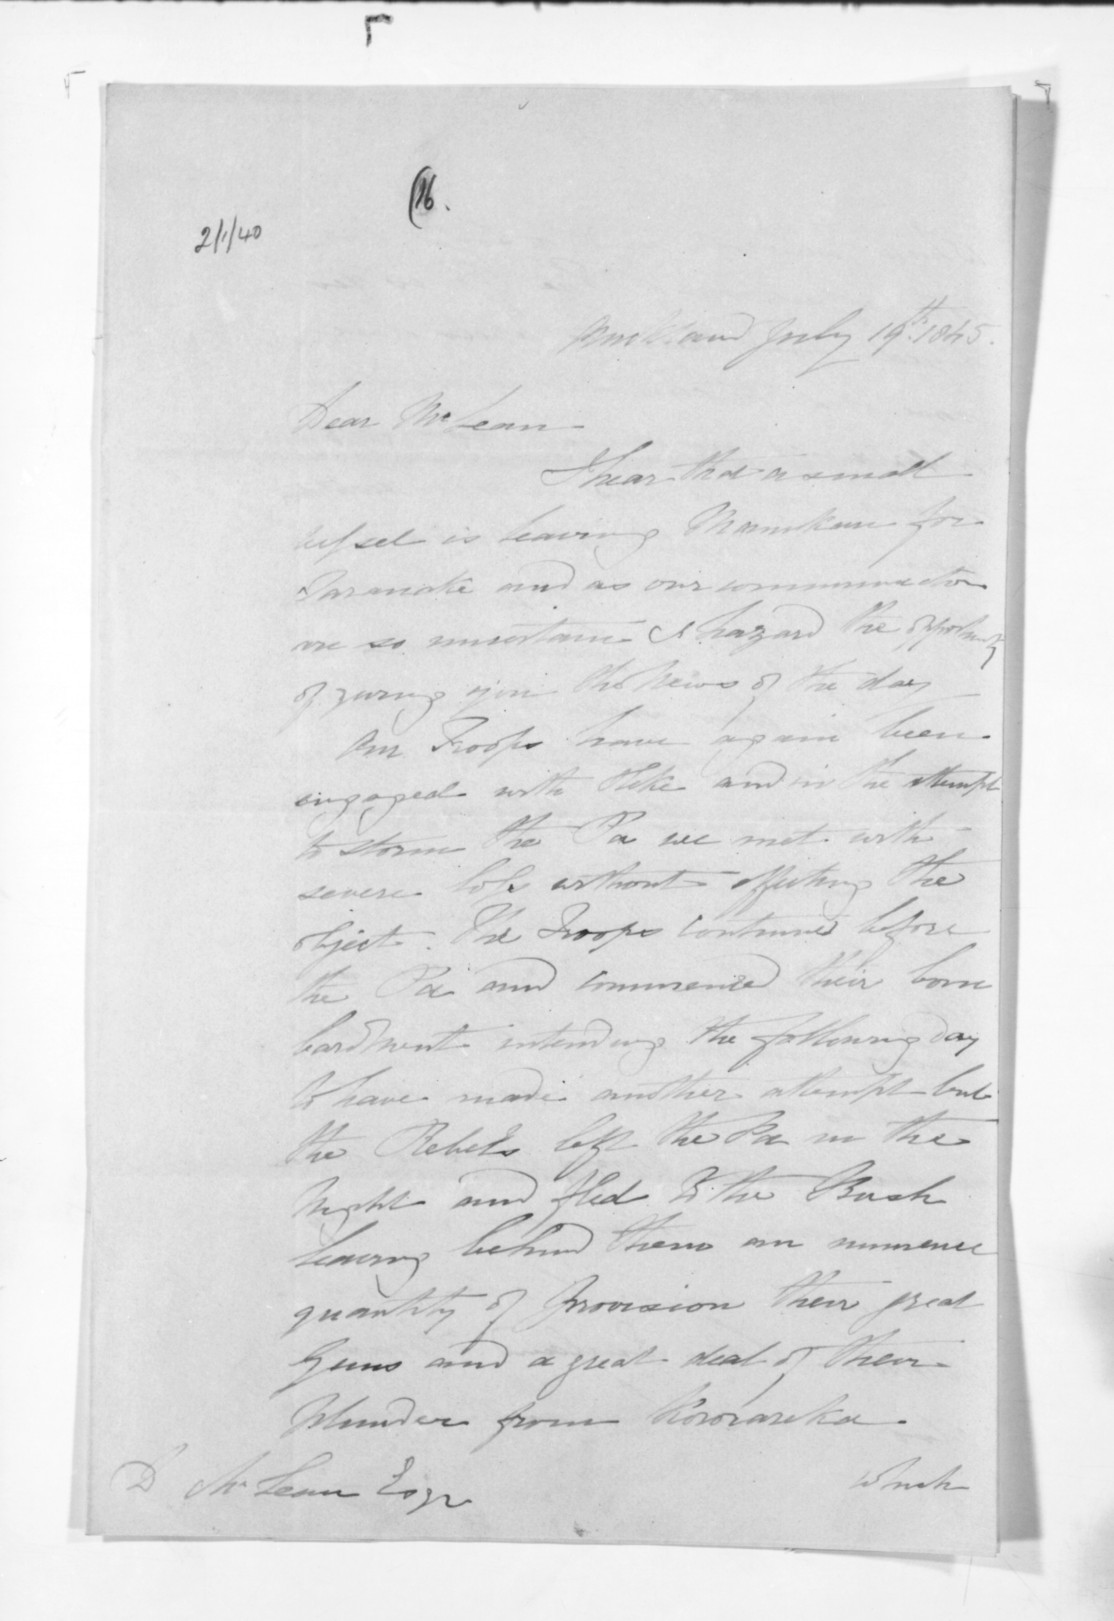 (16.
2/1/40
Auckland July 19th 1845.
Dear McLean
I hear that a small
vessel is leaving Manukau for
Taranake and as our communication
are so uncertain I hazard the opportunity
of giving you the News of the day
Our Troops have again been
engaged with Heke and in the attempt
to storm the Pa we met with
severe loss without effecting the
object. The Troops continued before
the Pa and commenced their bom
bardment intending the following day
to have made another attempt but
the Rebels left the Pa in the
Night and fled to the Bush
leaving behind them an immense
quantity of Provision their great
Guns and a great deal of their
Plunder from Kororareka.
which
D McLean Esqr